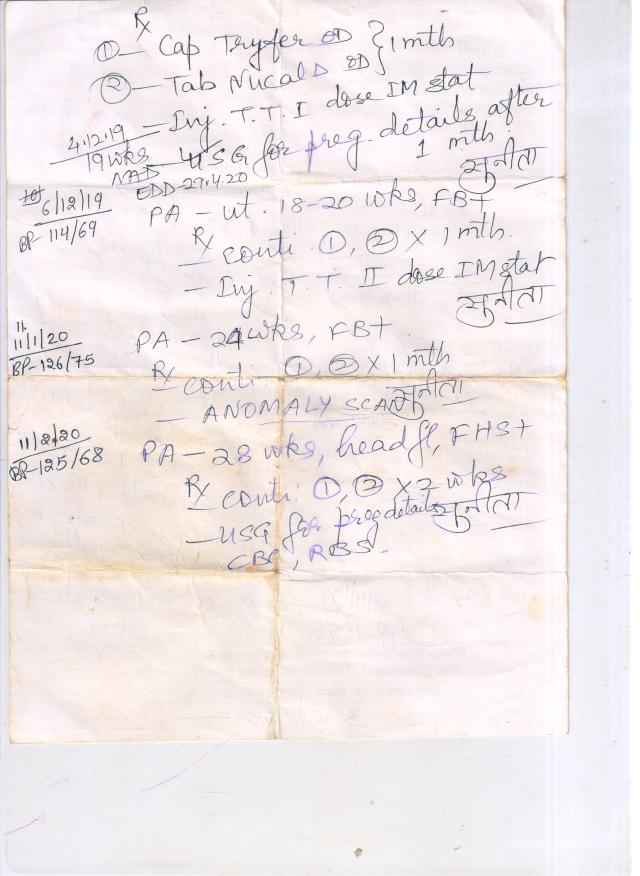 Rx
① — Cap Tryfer OD } 1 mth
② — Tab Nucal D OD
— Inj. T.T. I dose IM stat
— USG for preg. details after
1 mth.
सुनीता
4.12.19
19 wks
NAD
EDD-29.4.20
6/12/19
BP- 114/69
PA — ut. 18-20 wks, FB+
Rx
— conti. ①, ② X 1 mth.
— Inj. T.T. II dose IM stat
सुनीता
11/1/20
BP-126/75
PA — 24 wks, FB+
Rx
— conti. ①, ② X 1 mth
— ANOMALY SCAN
सुनीता
11/2/20
BP-125/68
PA — 28 wks, head fl, FHS+
Rx
— conti. ①, ② X 2 wks
— USG for preg details
सुनीता
CBC, RBS.